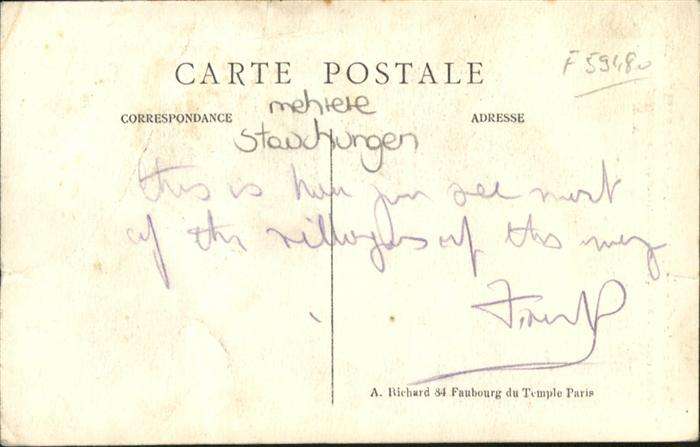 F 59480
CARTE POSTALE
CORRESPONDANCE
ADRESSE
mehrere
Stauchungen
this is how you see most
of the villages of this way
A. Richard 84 Faubourg du Temple Paris